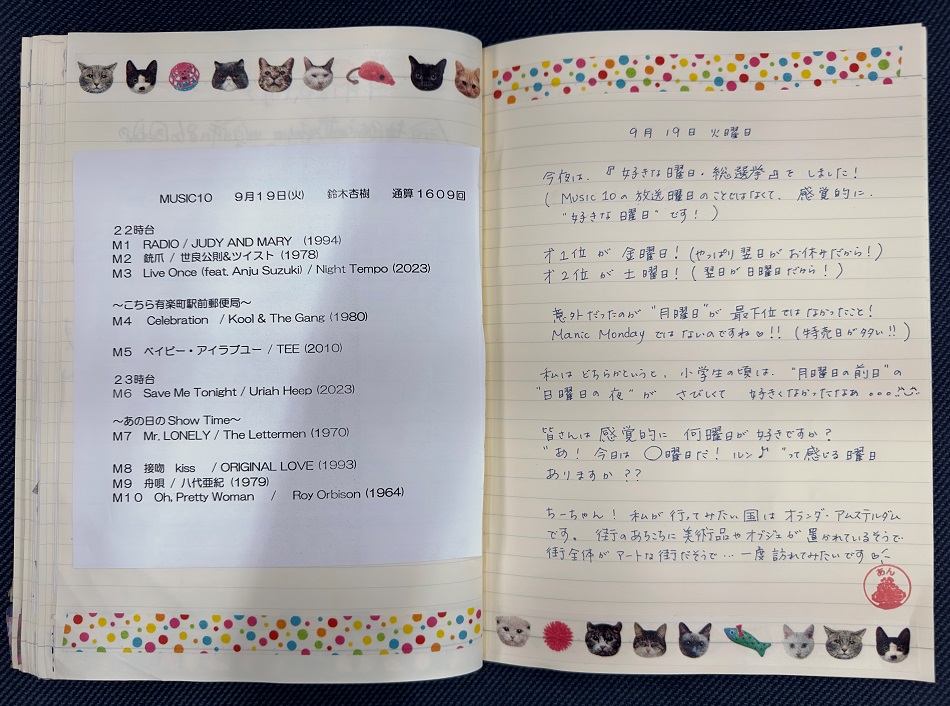 MUSIC10 9月19日(火) 鈴木杏樹 通算1609回
22時台
M1 RADIO / JUDY AND MARY (1994)
M2 銃爪 / 世良公則&ツイスト (1978)
M3 Live Once (feat. Anju Suzuki) / Night Tempo (2023)
～こちら有楽町駅前郵便局～
M4 Celebration / Kool & The Gang (1980)
M5 ベイビー・アイラブユー / TEE (2010)
23時台
M6 Save Me Tonight / Uriah Heep (2023)
～あの日の Show Time～
M7 Mr. LONELY / The Lettermen (1970)
M8 接吻 kiss / ORIGINAL LOVE (1993)
M9 舟唄 / 八代亜紀 (1979)
M10 Oh, Pretty Woman / Roy Orbison (1964)
9月19日 火曜日
今夜は、『好きな曜日・総選挙』を しました!
( Music 10の放送曜日のことではなくて、感覚的に、
"好きな曜日" です! )
才1位 が 金曜日! (やっぱり翌日が お休みだから!)
才2位 が 土曜日! ( 翌日が日曜日だから! )
意外だったのが "月曜日"が 最下位ではなかったこと!
Manic Monday ではないのですね♡!! (特売日が多い!!)
私は どちらかというと、小学生の頃は、"月曜日の前日"の
"日曜日の夜" が さびしくて 好きくなかったなぁ 。。。
皆さんは 感覚的に 何曜日が 好きですか?
"あ! 今日は ○曜日だ! ルン♪ "って感じる曜日
ありますか ??
ちーちゃん! 私が行ってみたい国は オランダ・アムステルダム
です。 街のあちこちに美術品やオブジェが置かれているそうで
街全体が アートな街だそうで… 一度訪れてみたいです♡
あん